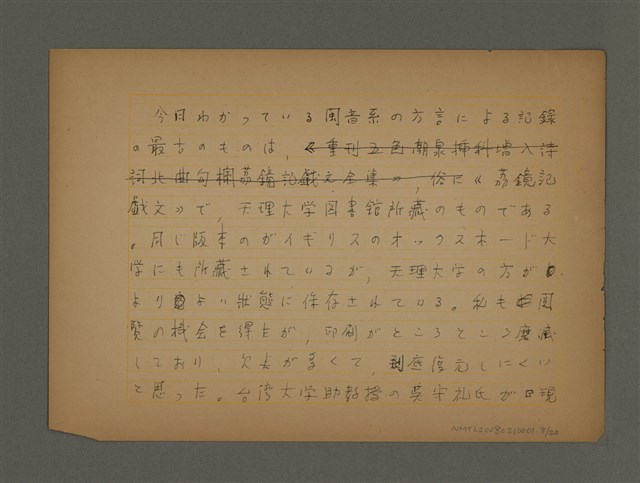 今日わかっている閩音系の方言による記録
の最古のものは,《重刊五色潮泉挿科増入詩
詞北曲勾欄荔鏡記戯文全集》,俗に《荔鏡記
戯文》で,天理大学図書館所蔵のものである
。同じ版本のがイギリスのオックスホード大
学にも所蔵されているが,天理大学の方が
よりよい状態に保存されている。私も
覧の機会を得たが,印刷がところところ磨滅
しており,欠失が多くて,到底復元しにくい
と思った。台湾大学助教授の呉守礼氏が 現
NMTL20080210001-7/20